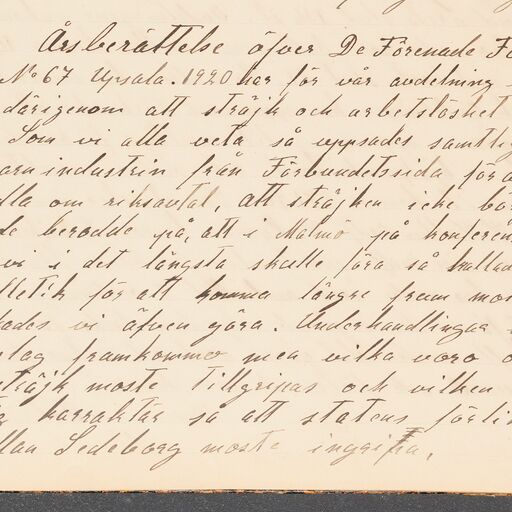 Årsberättelse öfver De Förenade Fö
No 67 Upsala. 1920 har för vår avdelning
därigenom att sträjk och arbetslöshet
Som vi alla veta så uppsades samtlig
arnindustrin från Förbundetssida för a
lla om riksavtal, att sträjken icke bör
de berodde på, att i Malmö på konferen
vi i det längsta skulle föra så kallad
ttetik för att komma längre fram mos
ades vi äfven göra. Underhandlingar
slag framkommo men vilka voro o
sträjk moste tillgripas och vilken
karraktär så att statens förli
llan Cederborg moste ingripa.